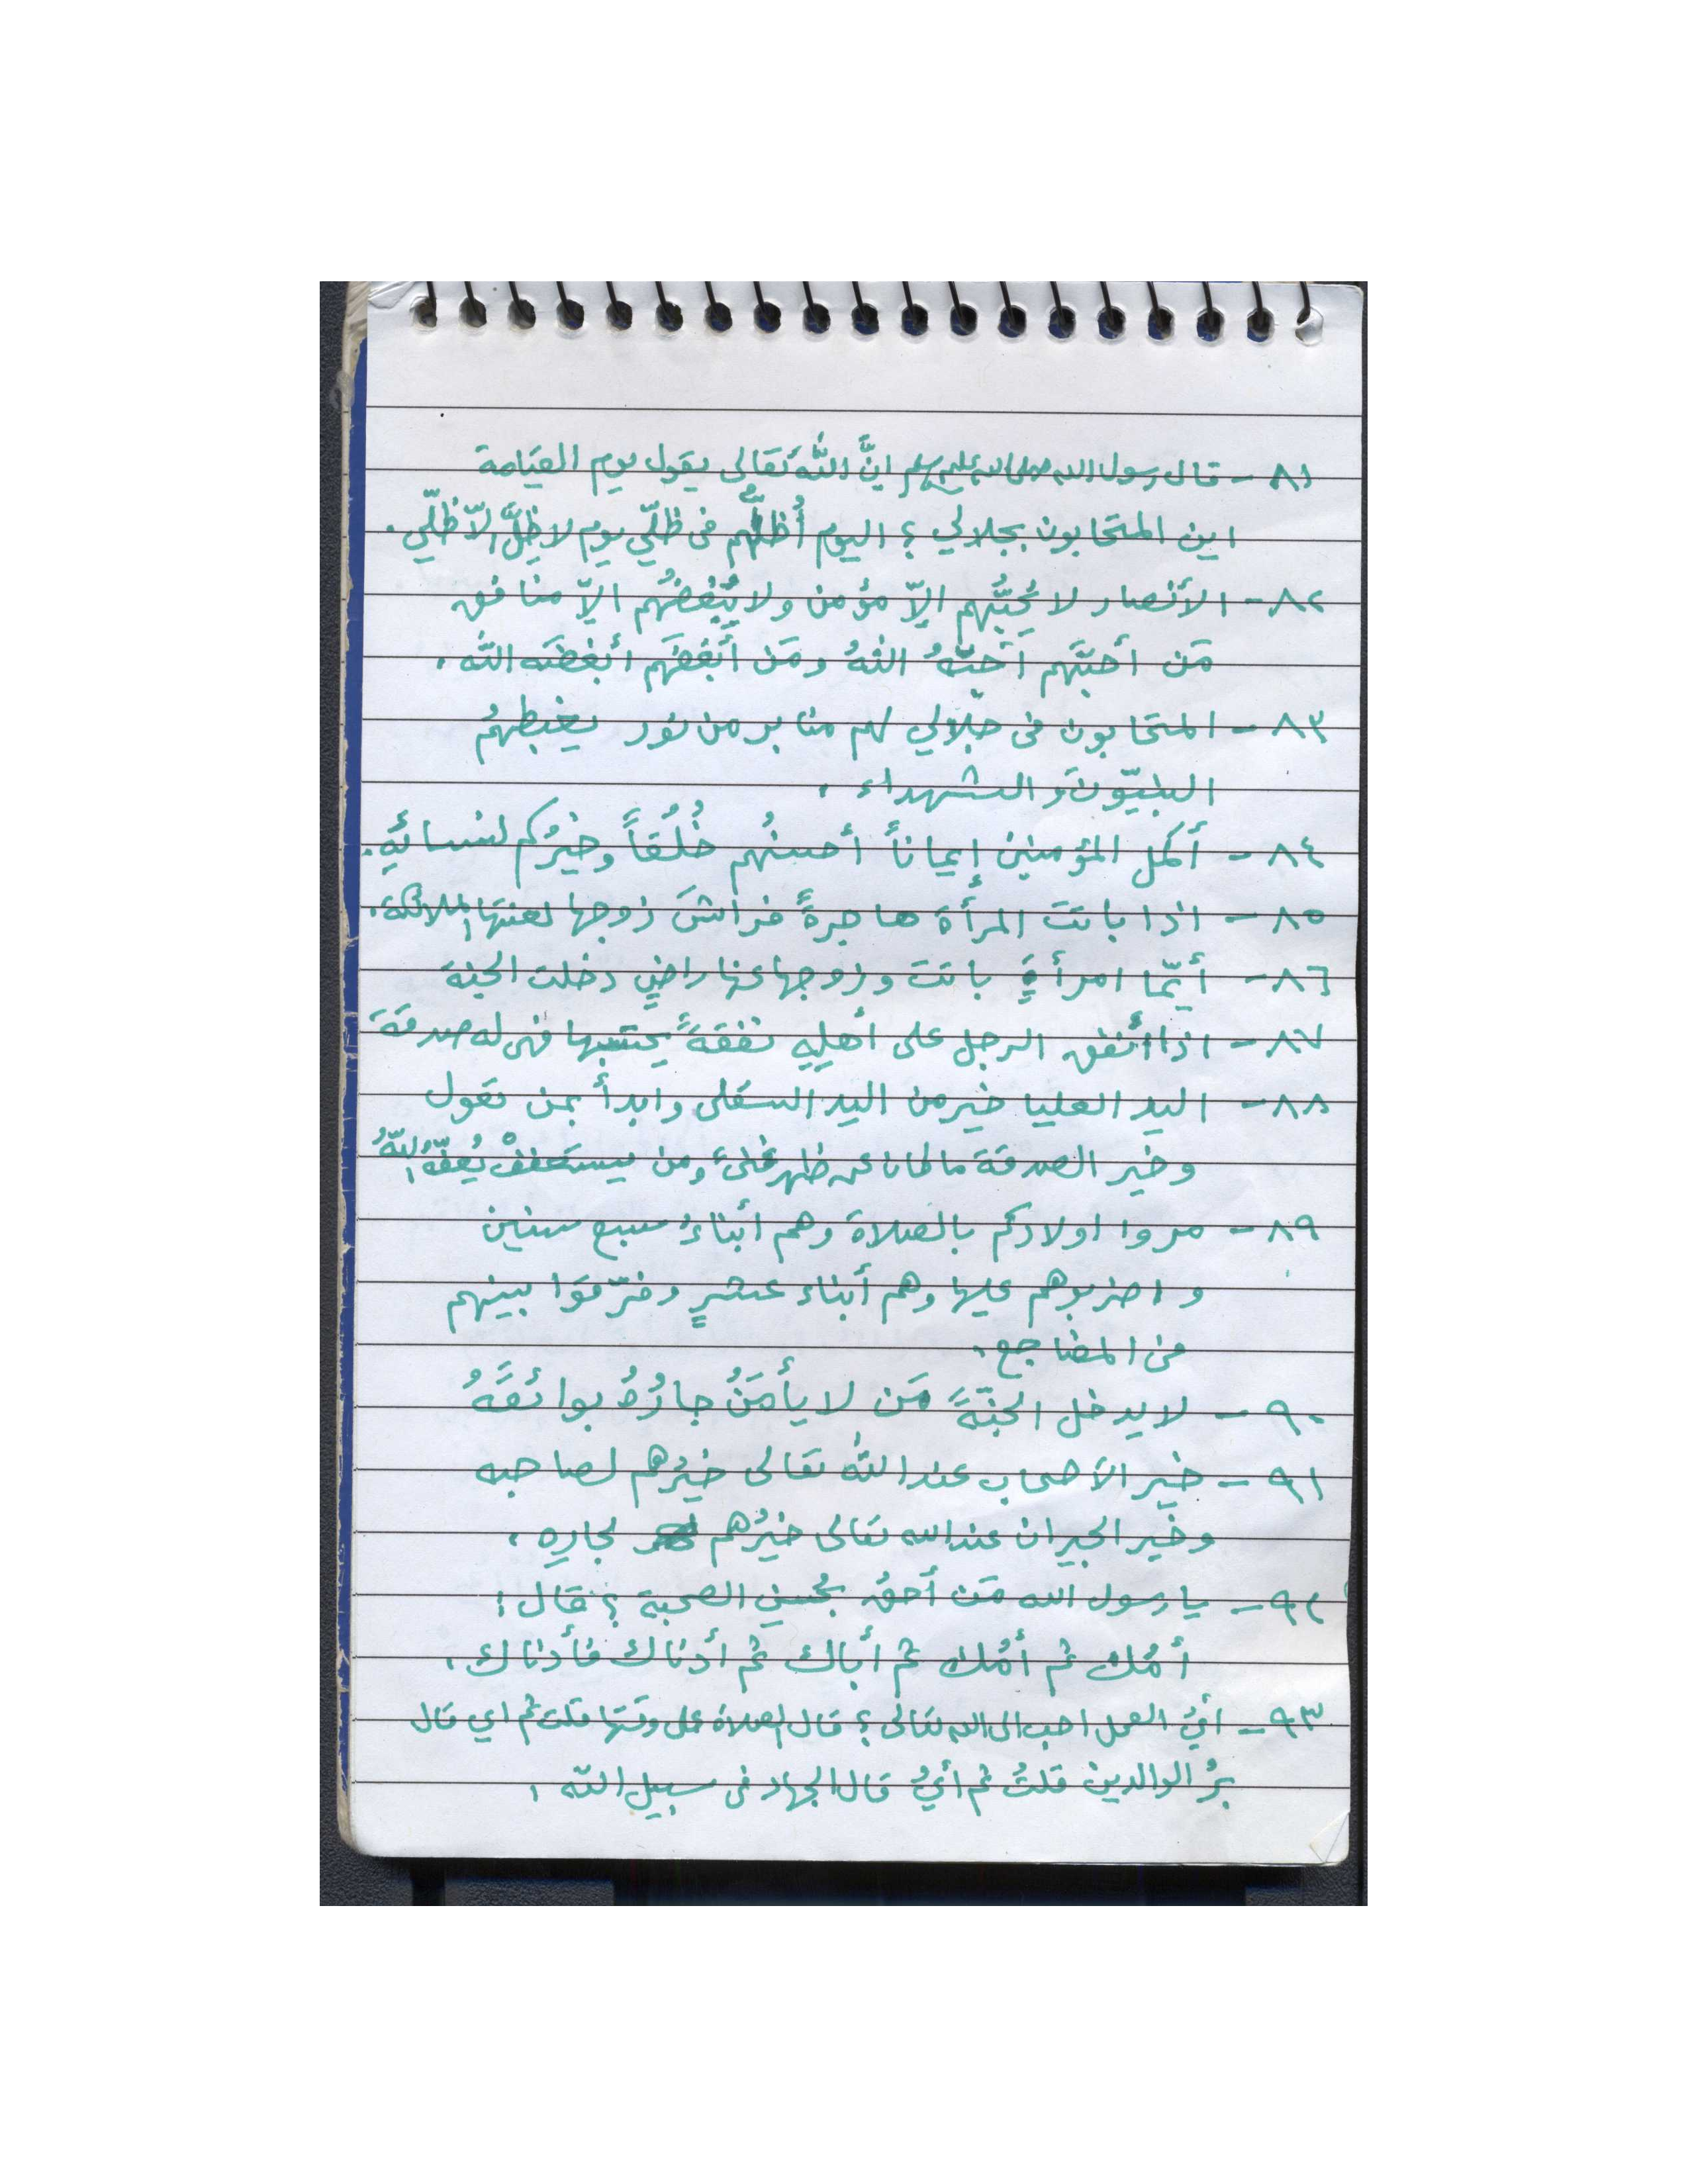 ٨١ - قال رسول الله صلى الله عليه وسلم انَّ اللّٰه تعَالى يقول يوم القيَامة
اين المتحابون بجلالي ؟ اليوم أُظلُّهم فى ظلّي يوم لا ظِلَّ الاّ ظلّي .
٨٢ - الأنصار لا يُحبُّهم الاّ مؤمن ولا يُبْغضُهم الاّ منافق
مَن أحبَّهم أَحبَّهُ اللهُ ومَن أَبغضَهم أبغضَه اللّه .
٨٣ - المتحابون فى جلالي لهم منابر من نور يغبطهمُ
النبيّونَ والشهداء .
٨٤ - أكمل المؤمنين إيماناً أحسنُهم خُلُقاً وخيرُكم لنسائِهِ .
٨٥ - اذا باتت المرأَة هاجرةً فراشَ زوجها لعنتها الملائكة .
٨٦ - أيّما امرأةٍ باتت وزوجها عنها راضٍ دخلت الجنة
٨٧ - اذا أنفق الرجل على أهلِهِ نفقةً يحتسبها فهى له صدقة
٨٨ - اليد العليا خير من اليد السفلى وابدأ بمن تعول
وخير الصدقة ما كان عن ظهر غنىً ومن يستعففْ يُعفَّهُ اللّهُ
٨٩ - مروا اولادكم بالصلاة وهم أبناءُ سبع سنين
واضربوهم عليها وهم أبناء عشرٍ وفرّقوا بينهم
فى المضاجع .
٩٠ - لا يدخل الجنّةَ مَن لا يأمَنُ جارُهُ بوائقَهُ
٩١ - خير الأصحاب عند اللّٰه تعالى خيرُهم لصاحبه
وخير الجيران عند الله تعالى خيرُهم لجارِهِ .
٩٢ - يا رسول الله مَن أَحقُ بحُسنِ الصحبة ؟ قال :
أمُك ثم أمُك ثم أباك ثم أدناك فأدناك .
٩٣ - أيُ العمل احب الى الله تعالى ؟ قال الصلاة على وقتها قلت ثم اي قال
برُ الوالدين قلتُ ثم أيُ قال الجهاد فى سبيل اللّه .